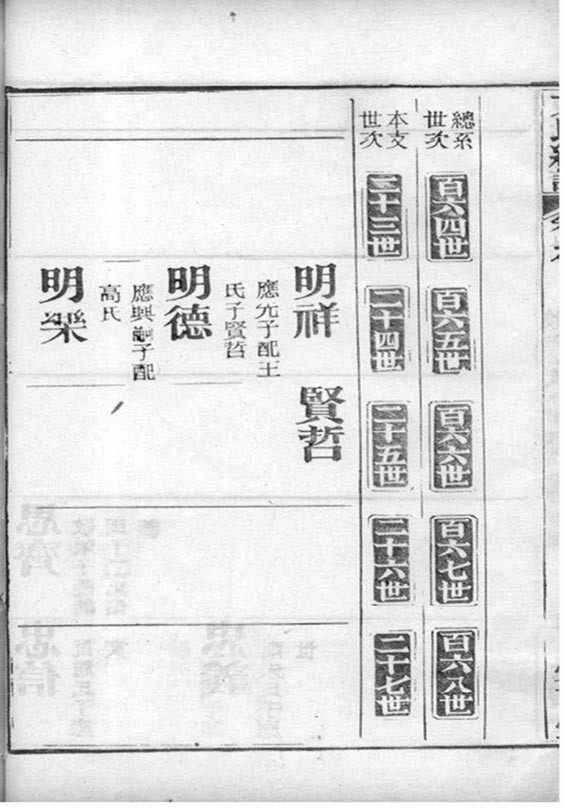 總系
世次
百六四世
百六五世
百六六世
百六七世
百六八世
本支
世次
二十三世
二十四世
二十五世
二十六世
二十七世
明祥
應元子配王
氏子賢哲
賢哲
明德
應興嗣子配
高氏
明樂